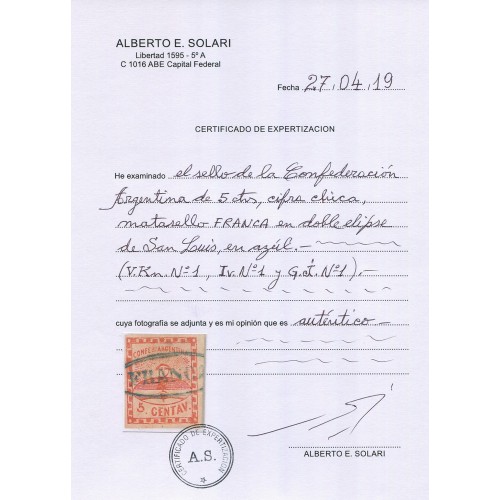 ALBERTO E. SOLARI
Libertad 1595 - 5º A
C 1016 ABE Capital Federal
Fecha 27.04.19
CERTIFICADO DE EXPERTIZACION
He examinado el sello de la Confederación
Argentina de 5 ctvs, cifra chica,
matasello FRANCA en doble elipse
de San Luis, en azúl.-
(V.Kn. Nº1, Iv. Nº1 y G.J. Nº1).-
cuya fotografía se adjunta y es mi opinión que es auténtico
CONFED. ARGENTINA
FRANC
5 CENTAV.
CERTIFICADO DE EXPERTIZACION
A.S.
ALBERTO E. SOLARI